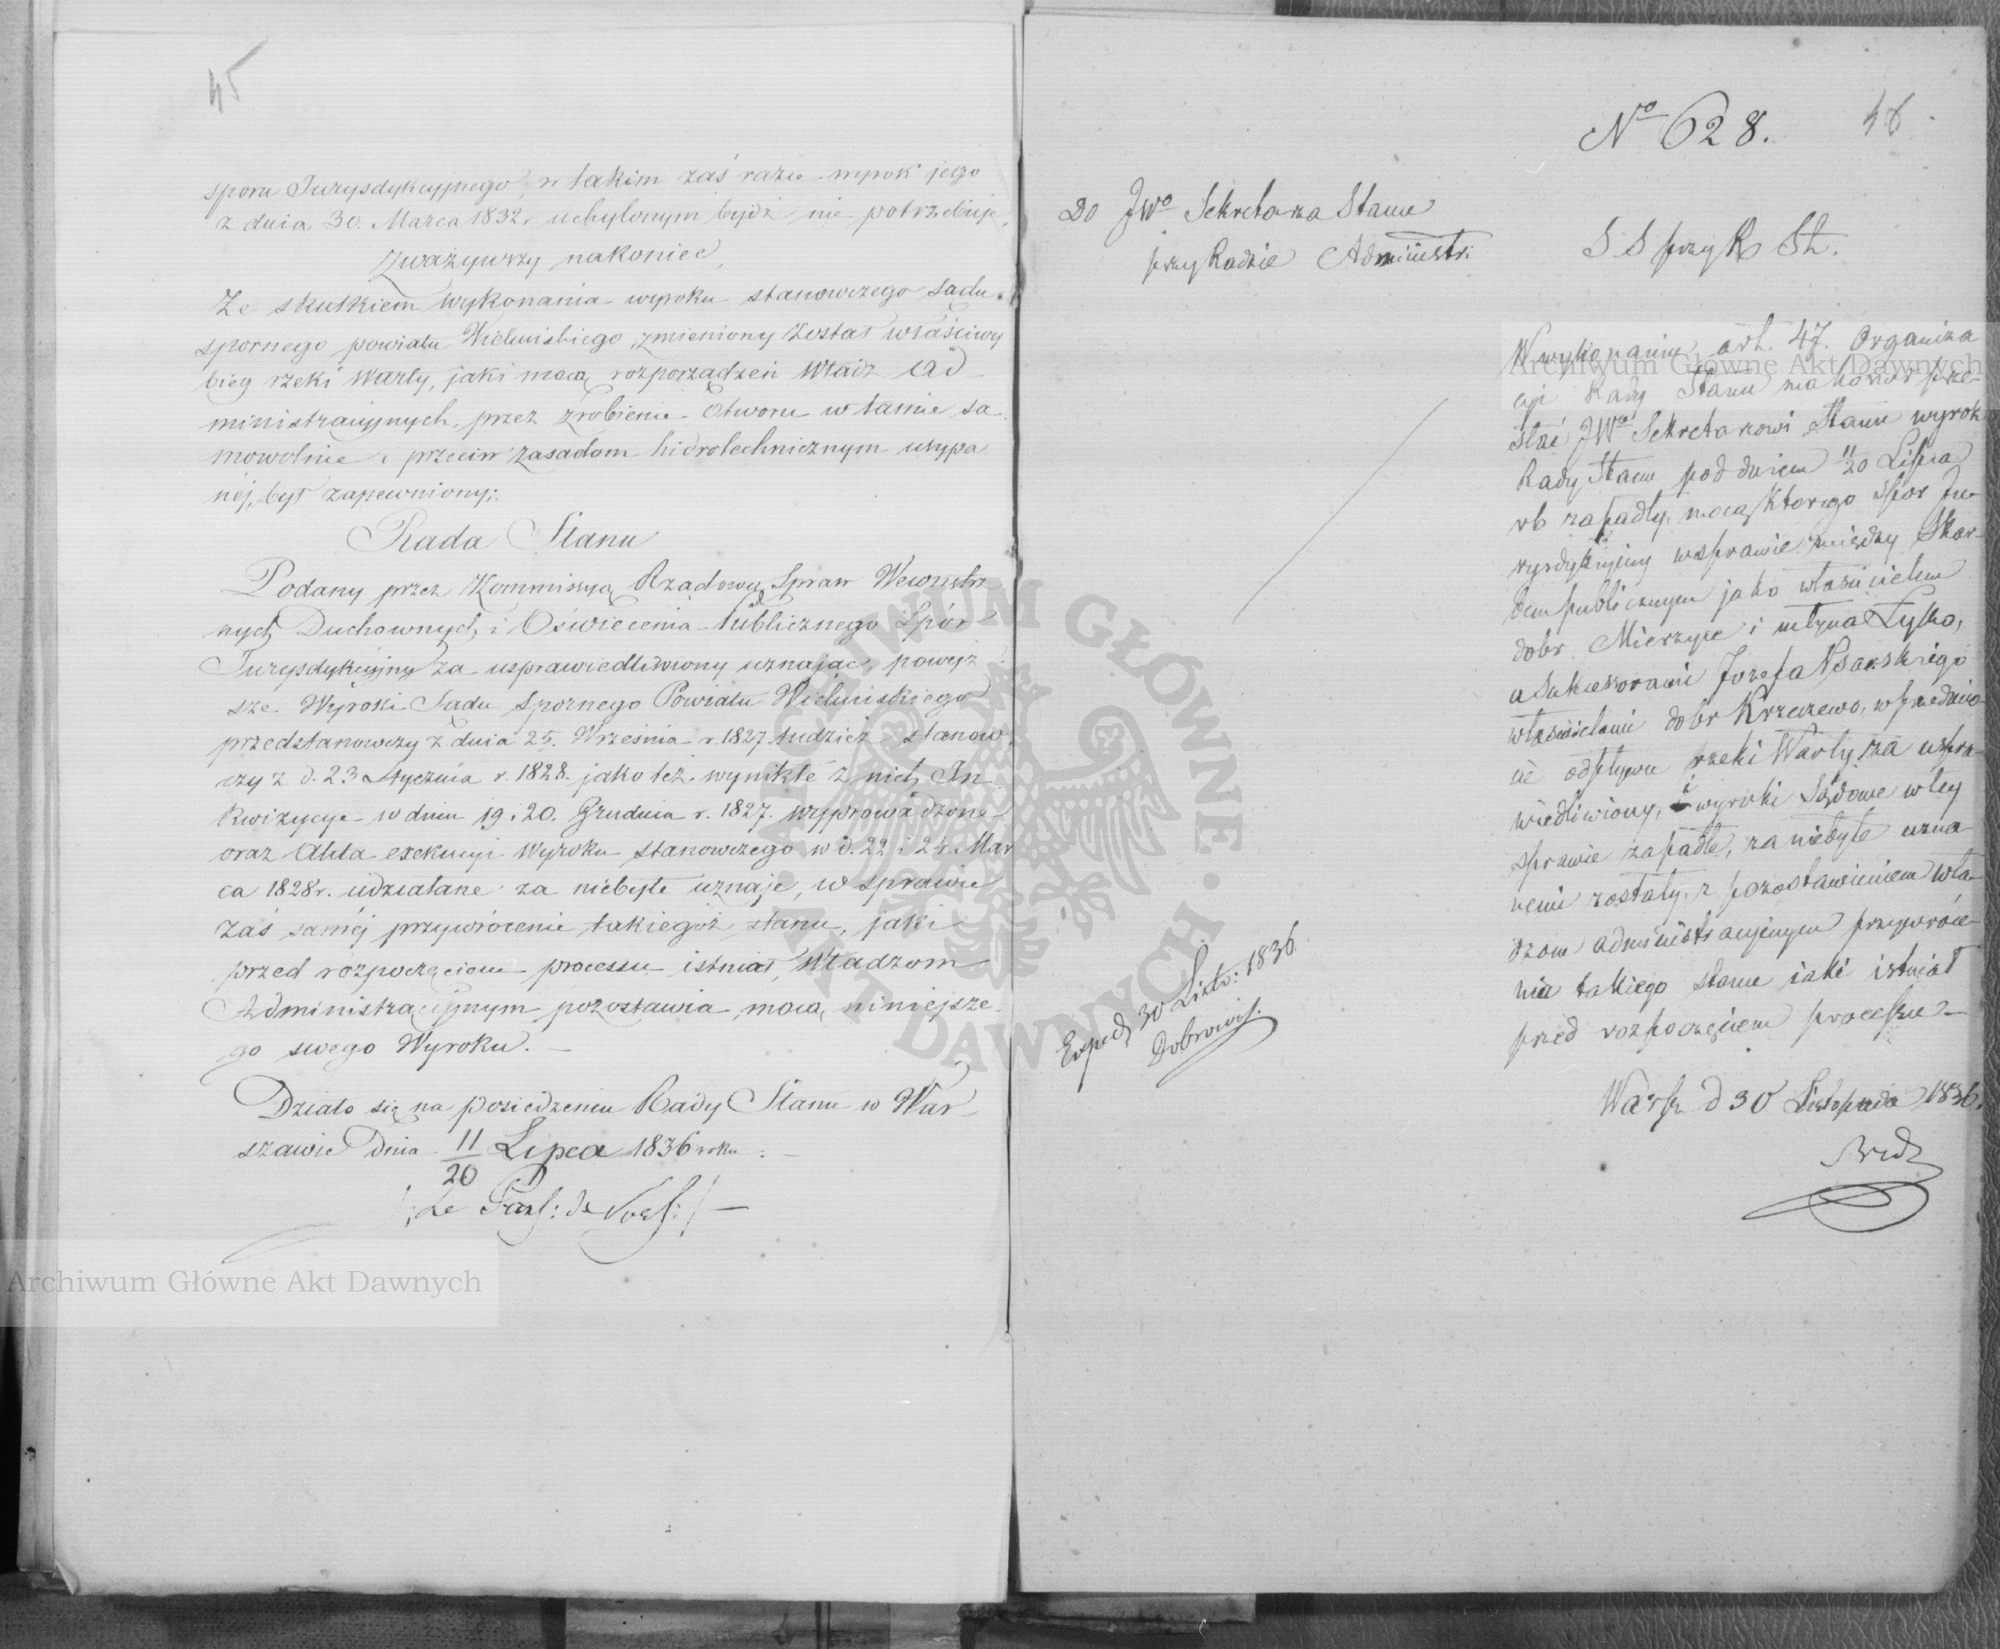 45
sporu Jurysdykcyjnego, w takim zaś razie wyrok jego
z dnia 30. Marca 1832 r. uchylonym bydź nie potrzebuje,
Zważywszy nakoniec,
Że skutkiem wykonania wyroku stanowczego Sądu
spornego powiatu Wieluńskiego zmieniony został właściwy
bieg rzeki Warty, jaki mocą rozporządzeń Władz Ad
ministracyjnych, przez zrobienie Otworu w tamie sa
mowolnie i przeciw zasadom hidrotechnicznym usypa
néj, był zapewniony;
Rada Stanu
Podany przez Kommissyą Rządową Spraw Wewnętrz
nych Duchownych i Oświecenia Publicznego Spór
Jurysdykcyjny za usprawiedliwiony uznając, powyż
sze Wyroki Sądu Spornego Powiatu Wieluńskiego
przedstanowczy z dnia 25. Września r. 1827 tudzież stanow
czy z d. 23 Stycznia r. 1828. jako też wynikłe z nich In
kwizycye w dniu 19 i 20. Grudnia r. 1827. wyprowadzone
oraz Akta exekucyi Wyroku stanowczego w d. 22 i 24 Mar
ca 1828 r. udziałane za niebyłe uznaje, w sprawie
zaś saméj przywrócenie takiegoż stanu, jaki
przed rozpoczęciem processu istniał, Władzom
Administracyjnym pozostawia mocą niniejsze
go swego Wyroku. —
Działo się na posiedzeniu Rady Stanu w War
szawie Dnia 11/20 Lipca 1836 roku. —
46
No 628.
Do JWo Sekretarza Stanu
przy Radzie Administr:
S S przy R St.
W wykonaniu art. 47. Organiza
cyi Rady Stanu ma honor prze
słać JWo Sekretarzowi Stanu wyrok
Rady Stanu pod dniem 11/20 Lipca
rb zapadły, mocą którego spór Ju
rysdykcyjny w sprawie między Skar
bem publicznym jako właścicielem
dobr Mierzyce i młyna Łyko,
a Sukcessorami Jozefa Psarskiego
właścicielami dobr Krzeczewo, w przedmio
cie odpływu rzeki Warty za uspra
wiedliwiony, i wyroki Sądowe w tey
sprawie zapadłe, za niebyłe uzna
nemi zostały, z pozostawieniem wła
dzom administracyjnym przywróce
nia takiego stanu jaki istniał
przed rozpoczęciem processu —
Warsz d 30 Listopada 1836.
Exped 30 Listo: 1836
Archiwum Główne Akt Dawnych
Archiwum Główne Akt Dawnych
ARCHIWUM GŁÓWNE · AKT DAWNYCH ·